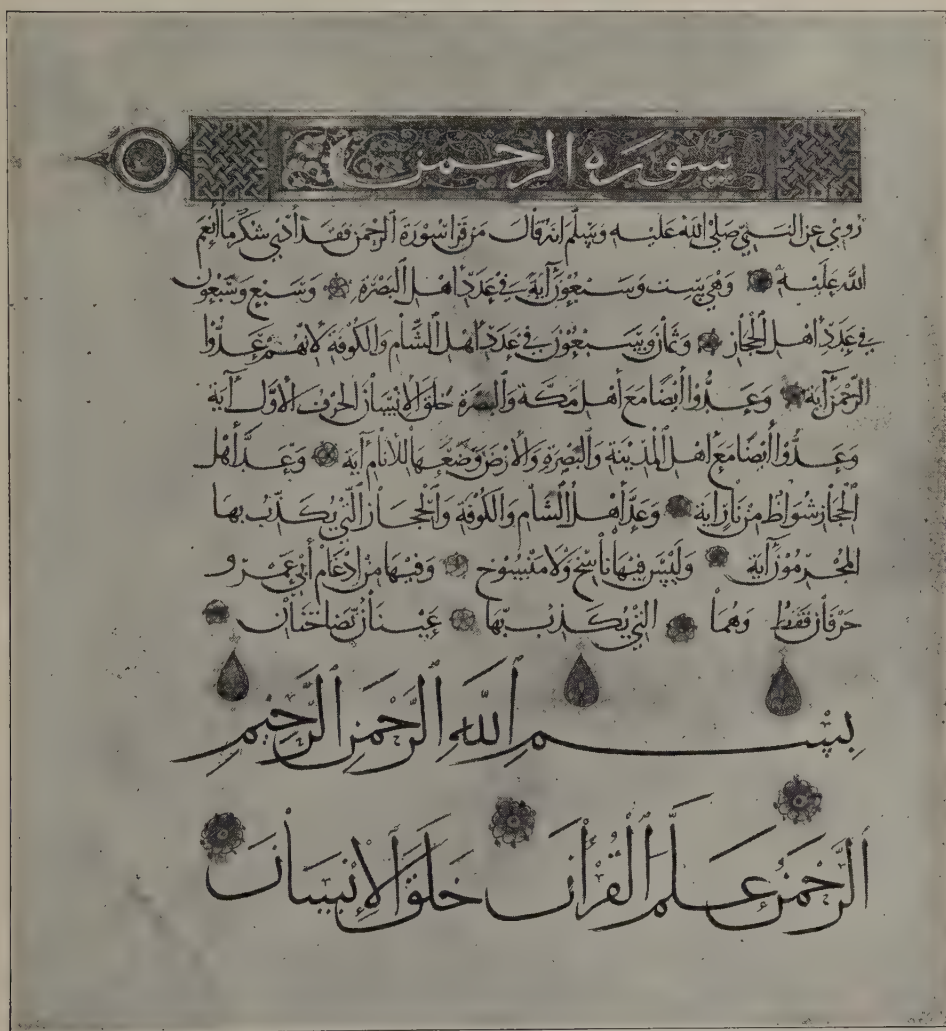 سورة الرحمن
روي عن النبي صلى الله عليه وسلم انه قال من قرا سورة الرحمن فقد أدى شكر ما أنعم
الله عليه وهي ست وسبعون آية في عدد اهل البصرة وسبع وسبعون
في عدد اهل الحجاز وثمان وسبعون في عدد اهل الشام والكوفة لانهم عدوا
الرحمن آية وعدوا أيضا مع أهل مكة والبصرة خلق الانسان الحرف الأول آية
وعدوا أيضا مع اهل المدينة والبصرة والأرض وضعها للأنام آية وعد أهل
الحجاز شواظ من نار آية وعد أهل الشام والكوفة والحجاز التي يكذب بها
المجرمون آية وليس فيها ناسخ ولا منسوخ وفيها من ادغام أبي عمرو
حرفان فقط وهما التي يكذب بها عينان نضاختان
بِسْمِ اللَّهِ الرَّحْمَنِ الرَّحِيمِ
الرَّحْمَنُ عَلَّمَ الْقُرْأَنَ خَلَقَ الْإِنْسَانَ